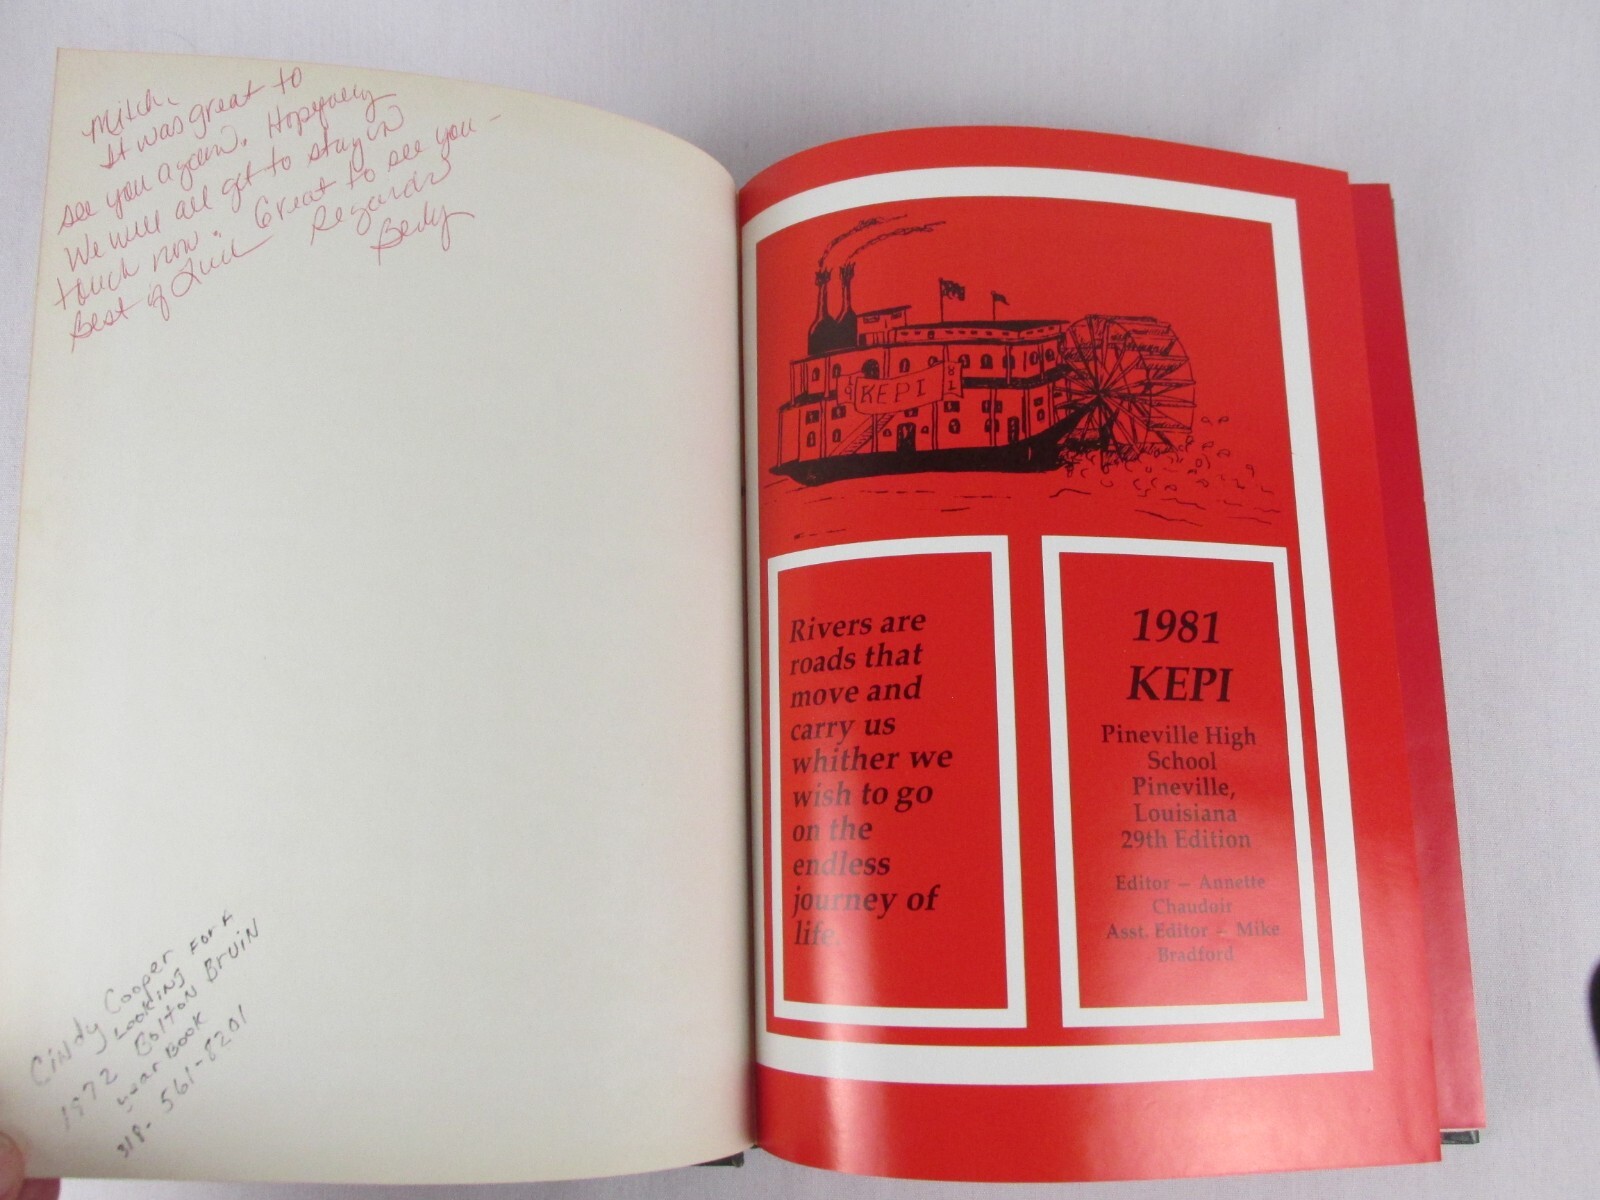 Mitch,
It was great to
see you again. Hopefully
We will all get to stay in
touch now. Great to see you -
Best of Luck Regards
Cindy Cooper
looking for a
1972 Bolton Bruin
year Book
318-561-8201
KEPI
81
Rivers are
roads that
move and
carry us
whither we
wish to go
on the
endless
journey of
life.
1981
KEPI
Pineville High
School
Pineville,
Louisiana
29th Edition
Editor — Annette
Chaudoir
Asst. Editor — Mike
Bradford